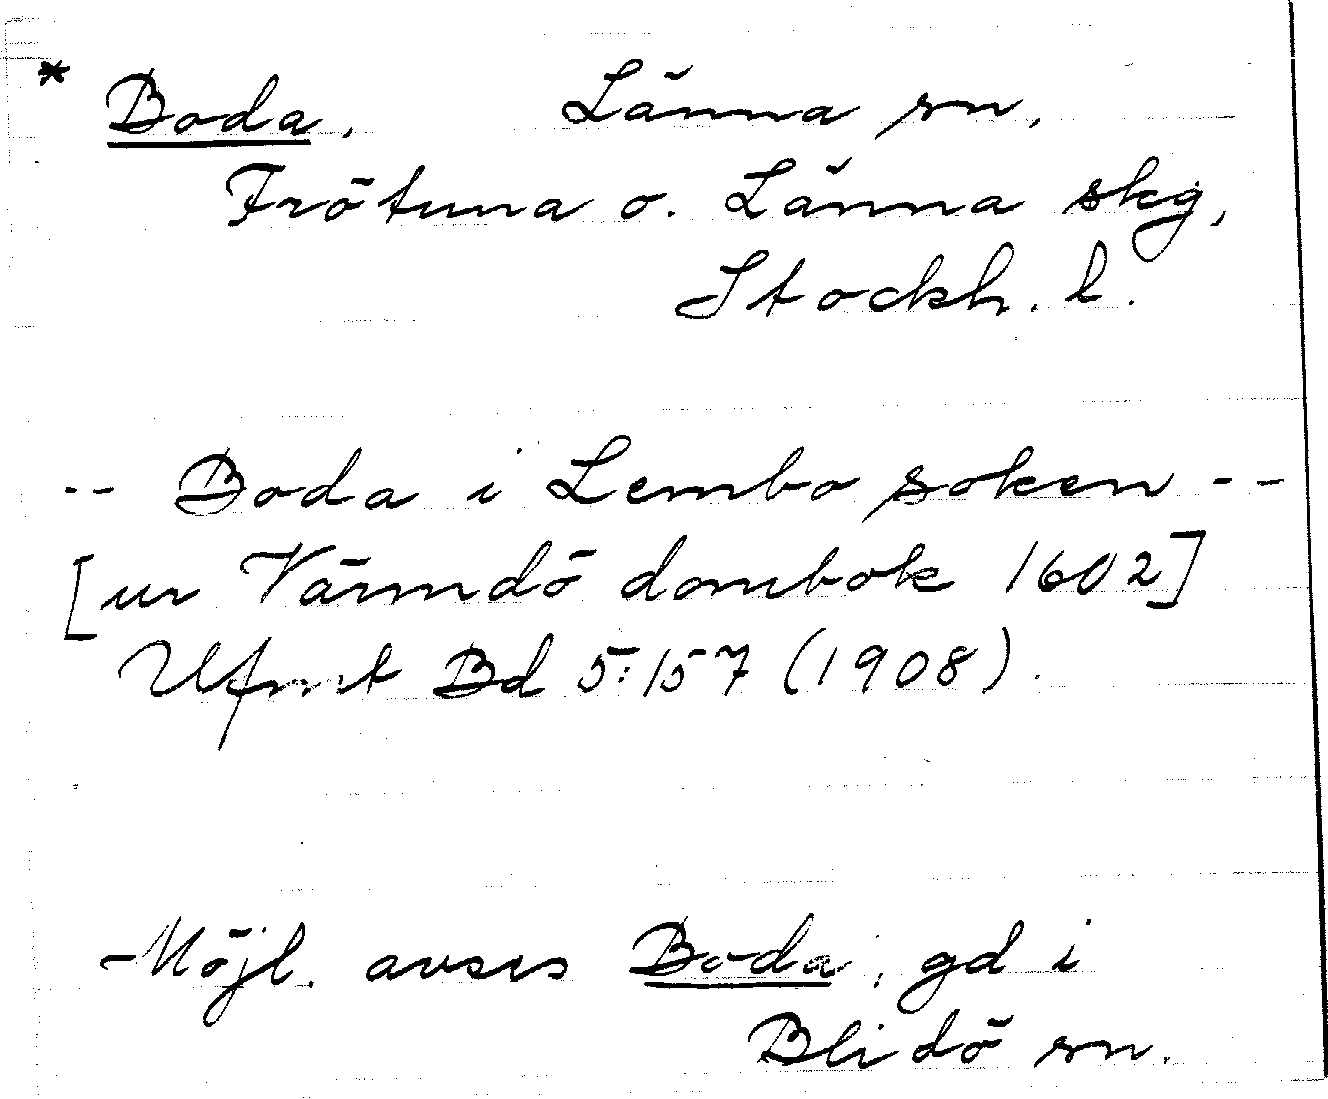 * Boda. Länna sn,
Frötuna o. Länna skg,
Stockh. l.
-- Boda i Lembo soken --
[ur Värmdö dombok 1602]
Ufmt Bd 5:157 (1908).
Möjl. avses Boda, gd i
Blidö sn.